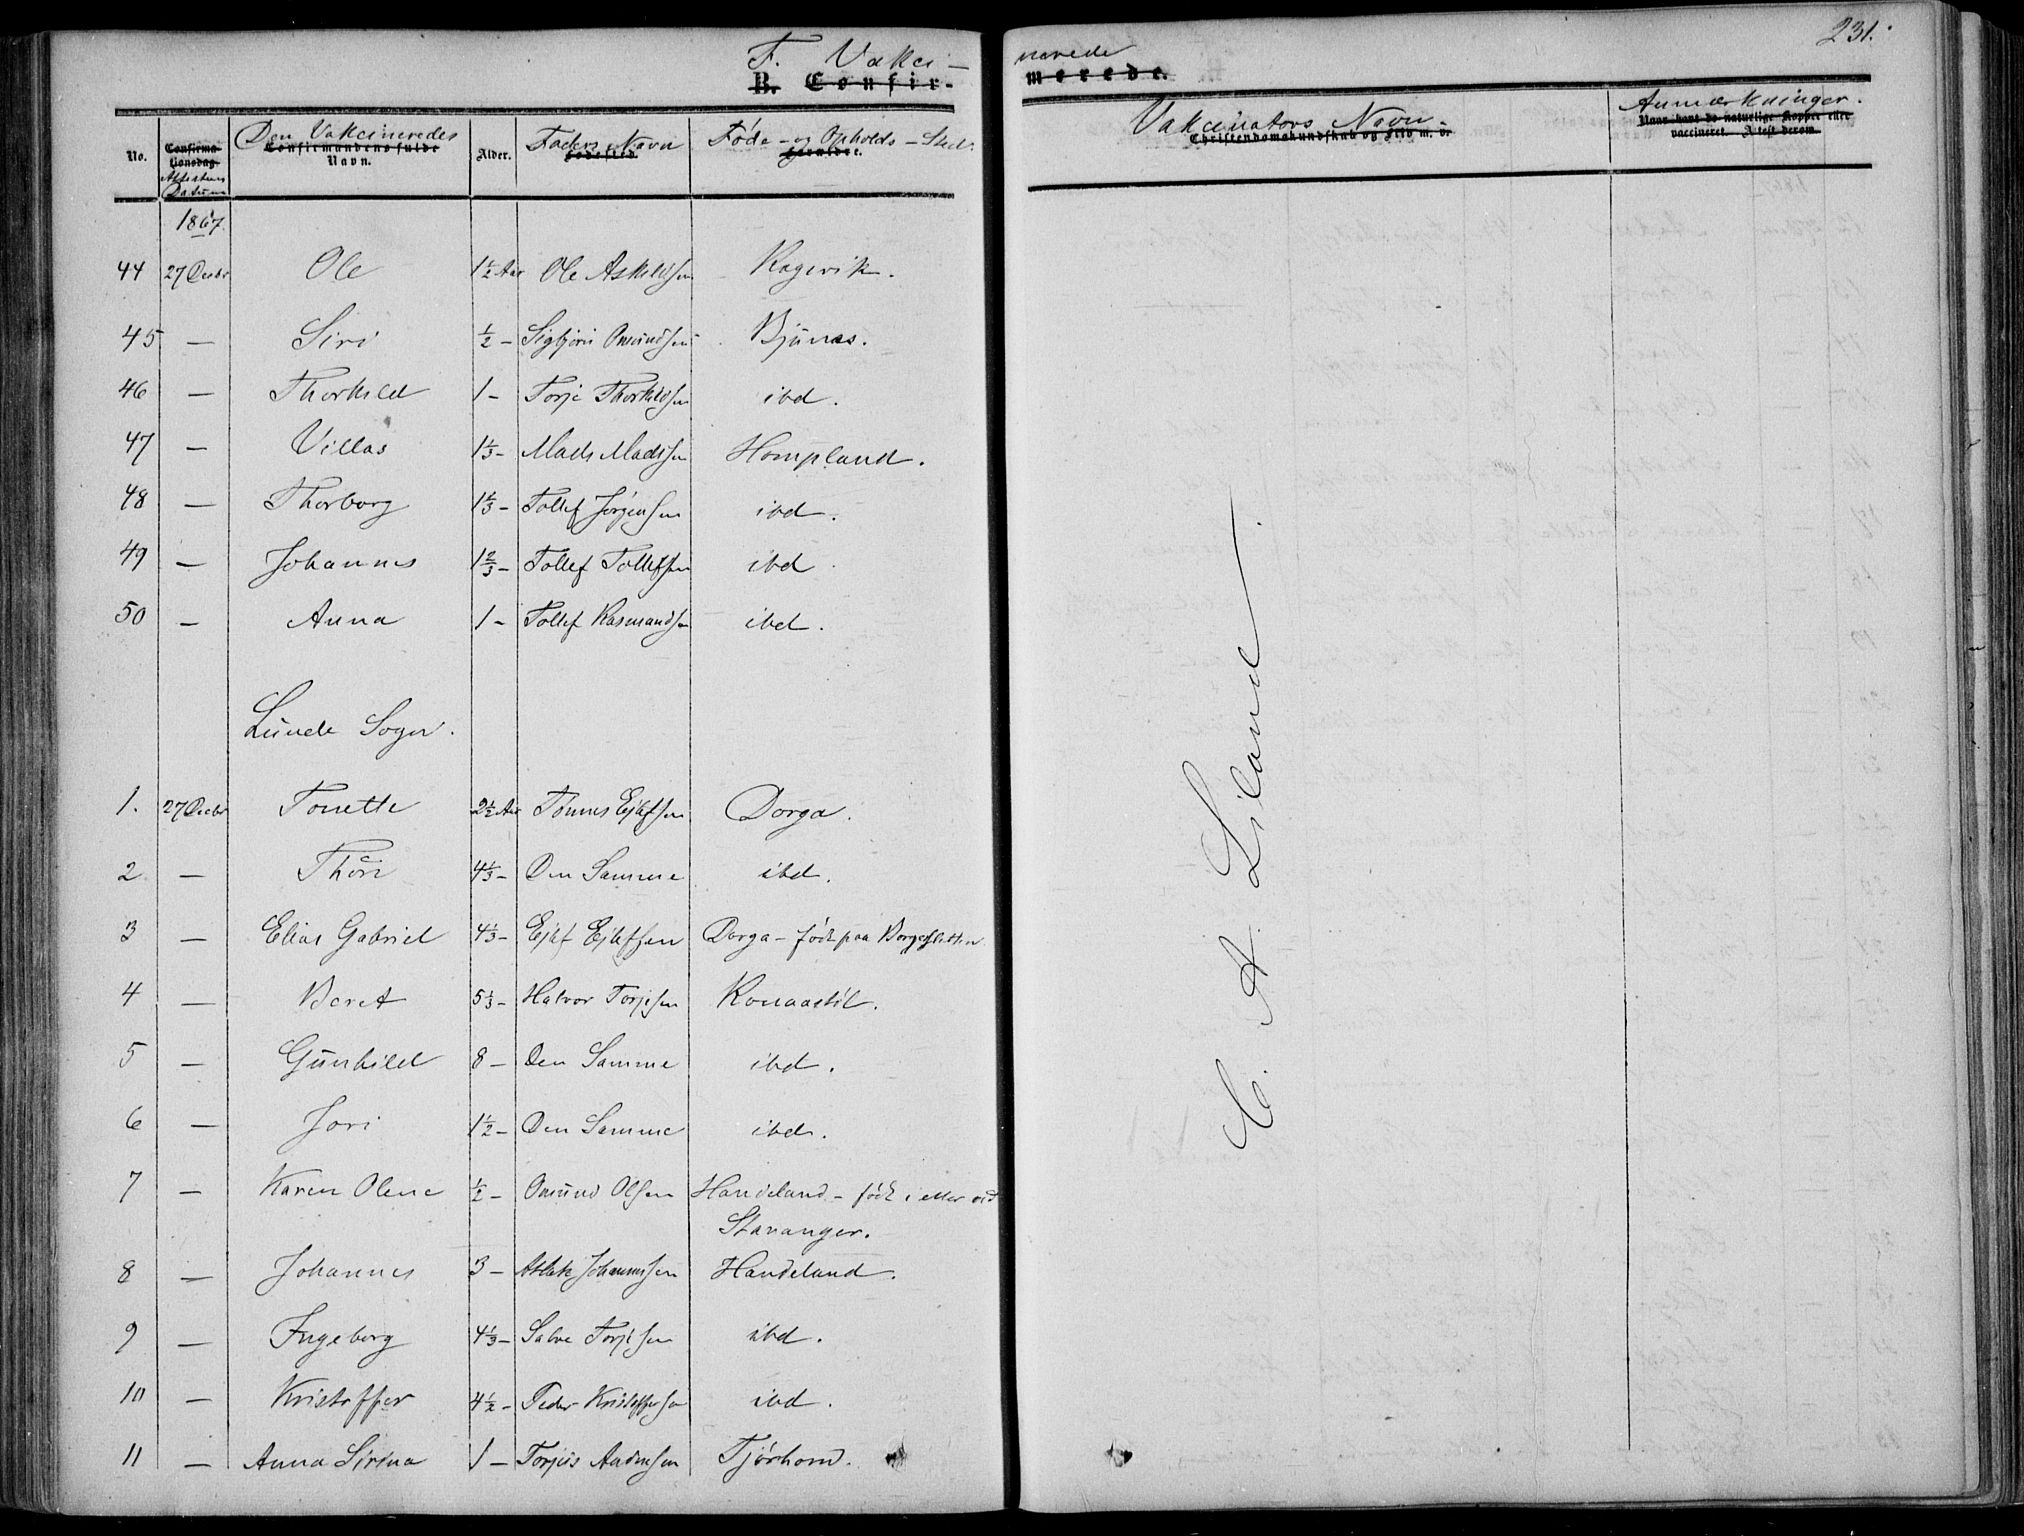 231.
F. Vakci-
nerede
B. Confir-
merede.
No.
Confirma-
tionsdag.
Attestens
Datum
Den Vakcineredes
Confirmandens fulde
Navn.
Alder.
Faders Navn
Fødested.
Føde- og Opholds-Sted.
Forældre.
Vakcinators Navn.
Christendomskundskab og Flid m. v.
Anmærkninger.
Naar havt de naturlige Kopper eller
vaccineret. Attest derom.
1867.
44 27 Decbr Ole 1½ Aar Ole Askildsen
45 — Siri ½ - Sigbjørn Omundsen
46 — Thorkild 1 - Torje Thorkildsen ibd.
47 — Villas 1⅓ - Mads Madssen Hompland.
48 — Thorborg 1⅓ - Tollef Jørgensen ibd.
49 — Johannes 1⅔ - Tollef Tollefsen ibd
50 — Anna 1 - Tollef Rasmundsen ibd.
Lunde Sogn.
1. 27 Decbr Tonette 2½ Aar Tønnes Ejlefsen Dorga.
2 — 4⅓ - Den Samme ibd.
3 — Elias Gabriel 4⅓ - Ejlef Ejlefsen Dorga - født paa
4 — Beret 5⅓ - Halvor Torjesen
5 — Gunhild 8 - Den Samme ibd.
6 — Jori 1½ - Den Samme ibd.
7 — Karen Olene ½ - Omund Olsen Handeland - født i eller ved
Stavanger.
8 — Johannes 3 - Atlak Johannessen Handeland.
9 — Ingeborg 4⅓ - Salve Torjesen ibd.
10 — Kristoffer 4½ - Peder Kristoffersen ibd.
11 — Anna Sirina 1 - Torjus Andersen Tjørhom.
C. A. Liland.